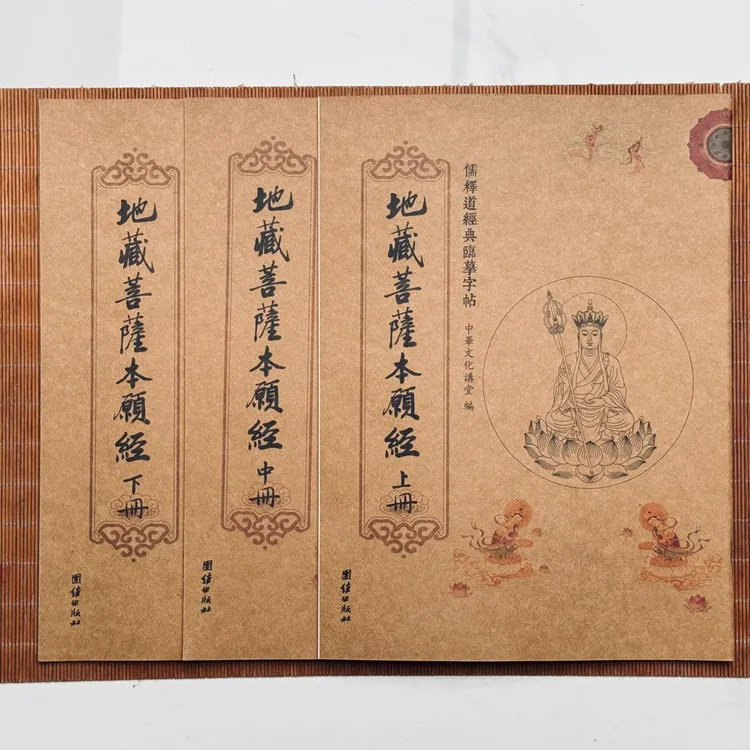 儒釋道經典臨摹字帖
中華文化講堂 編
地藏菩薩本願經
上冊
團結出版社
地藏菩薩本願經
中冊
團結出版社
地藏菩薩本願經
下冊
團結出版社